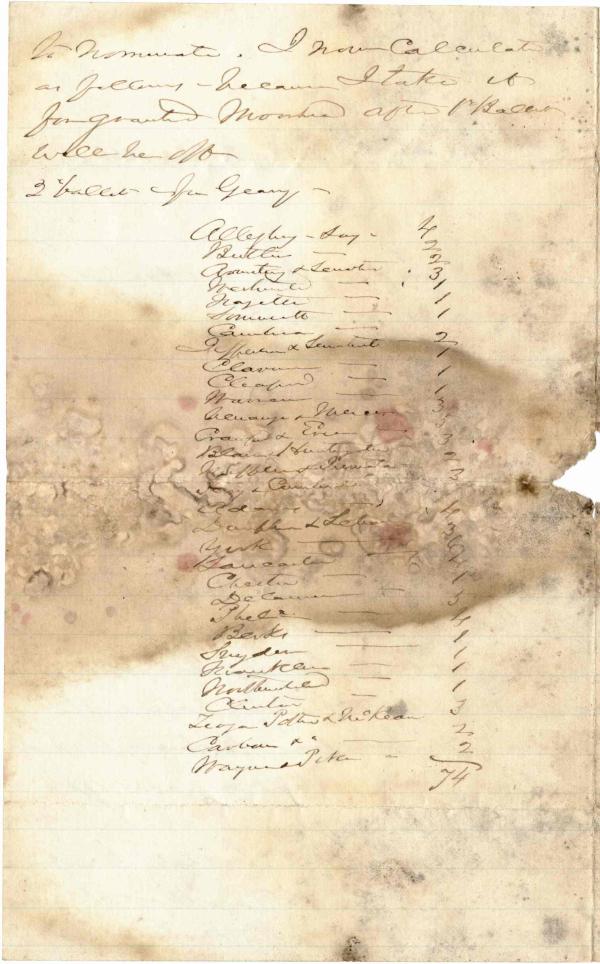 to nominate. I now Calculate
as follows – because I take it
for granted Moorhead after 1st Ballot
will be off
2d ballot – for Geary –
Allegheny – say – 4
Butler – 2
Armstrong & Senator 2
3
Fayette – 1
Somerset – 1
Cambria – 1
Jefferson & Senator 2
Clarion – 1
Clearfield – 1
Warren – 1
Venango & Mercer 3
Crawford & Erie
Blair & Huntingdon 3
& Cumberland
Adams
Dauphin & Lebanon
York
Lancaster
Chester
Delaware
Phila
Berks
Snyder
Northumbd
Clinton
Tioga Potter & McKean 3
Carbon & " 2
Wayne & Pike – 2
74